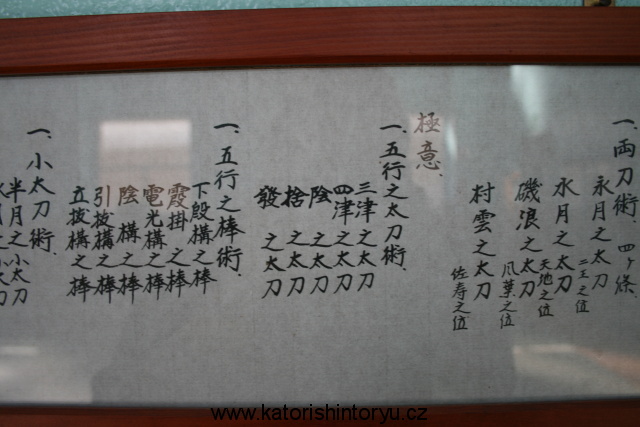 一、両刀術、四ヶ條、
永月之太刀
二王之位
水月之太刀
天地之位
磯浪之太刀
凡葉之位
村雲之太刀
佐寿之位
極意、
一、五行之太刀術、
三津之太刀
四津之太刀
陰之太刀
捨之太刀
發之太刀
一、五行之棒術、
下段構之棒
霞掛之棒
電光構之棒
陰構之棒
引拔構之棒
立拔構之棒
一、小太刀術、
半月之小太刀
www.katorishintoryu.cz